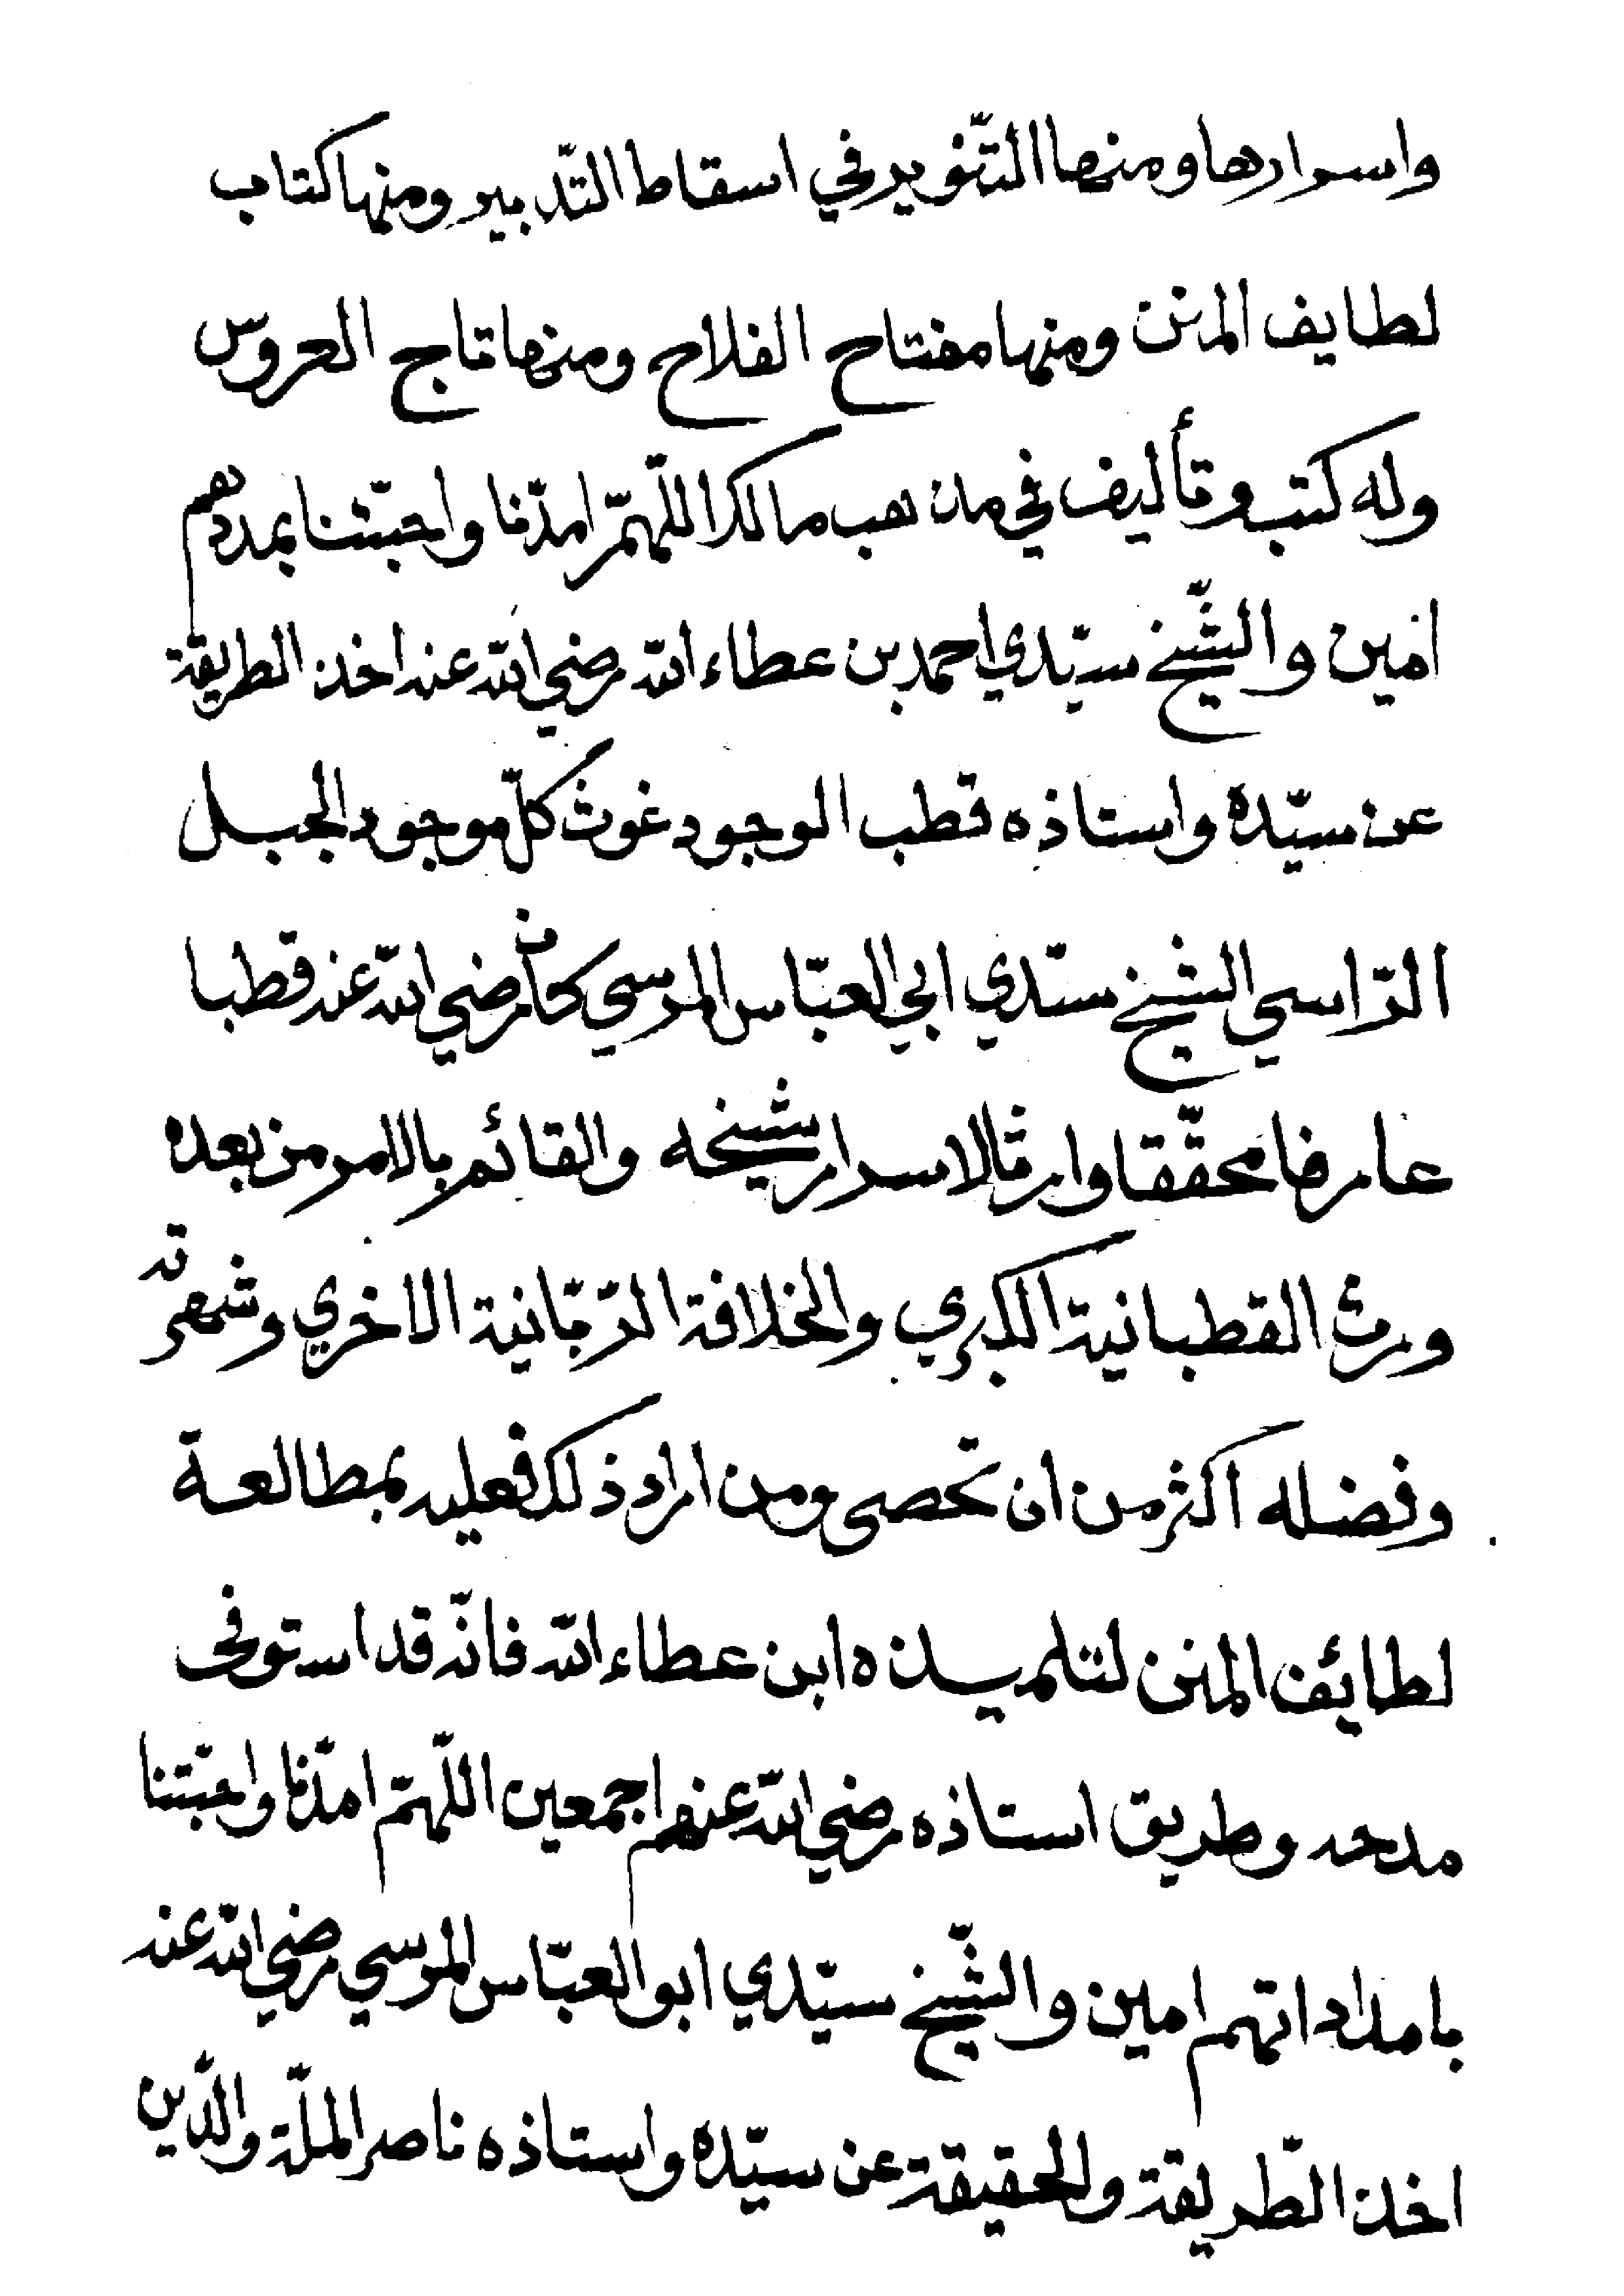 واسرارها ومنها التّنوير في اسقاط التّدبير ومنها كتاب
لطايف المنن ومنها مفتاح الفلاح ومنها تاج العروس
وله كتب وتأليف في مذهب مالك اللّهمّ امدّنا واحبّتنا بمددهم
امين والشّيخ سيّدي احمد بن عطاء الله رضي الله عنه اخذ الطريقة
عن سيّده واستاذه قطب الوجود غوث كلّ موجود الجبل
الرّاسي الشيخ سيّدي ابي العبّاس المرسي كان رضي الله عنه قطبا
عارفا محقّقا وارثا لاسرار شيخه والقائم بالامر من بعده
ورث القطبانية الكبرى والخلافة الرّبّانية الاخري وشهرته
وفضله اكثر من ان تحصى ومن اراد ذلك فعليه بمطالعة
لطائف المنن لتلميذه ابن عطاء الله فانّه قد استوفى
مدحه وطريق استاذه رضي الله عنهم اجمعين اللّهمّ امدّنا واحبّتنا
بامداداتهم امين والشّيخ سيّدي ابو العبّاس المرسي رضي الله عنه
اخذ الطّريقة والحقيقة عن سيّده واستاذه ناصر الملّة والدّين